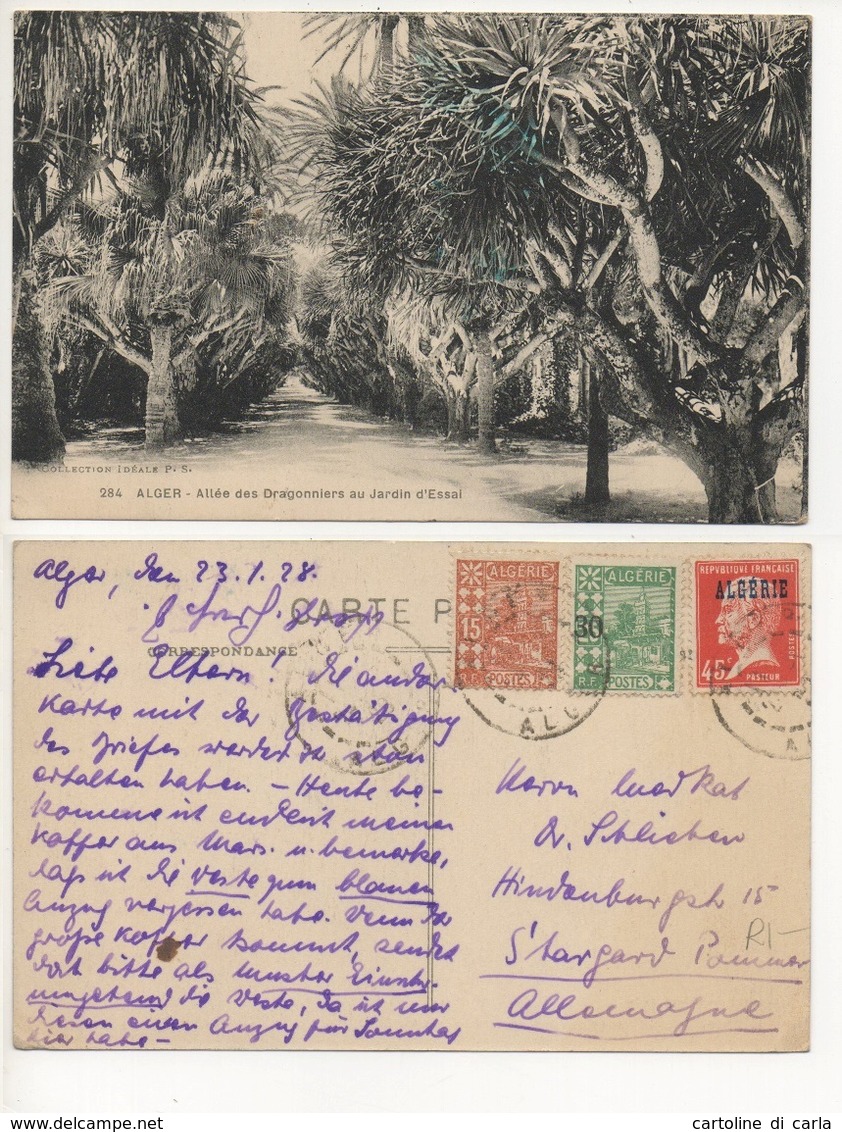 COLLECTION IDÉALE P. S.
284 ALGER - Allée des Dragonniers au Jardin d'Essai
Alger, den 23.1.28.
CARTE P
CORRESPONDANCE
ALGÉRIE
15
R.F. POSTES
ALGÉRIE
30
R.F. POSTES
RÉPUBLIQUE FRANÇAISE
ALGÉRIE
45c
POSTES
PASTEUR
ALG
ALG
Liebe Eltern! Die andere
Karte mit der Bestätigung
des Briefes werdet Ihr schon
erhalten haben. – Heute be-
komme ich endlich meinen
Koffer aus Mars. u. bemerke,
daß ich die Weste zum blauen
Anzug vergessen habe. Wenn der
große Koffer kommt, sendet
doch bitte als Muster
umgehend die Weste, da ich nur
diesen einen Anzug für Sonntag
hier habe –
Herrn
Dr. Schlieben
Hindenburgstr 15
Stargard Pommern
Allemagne
R1-
cartoline di carla